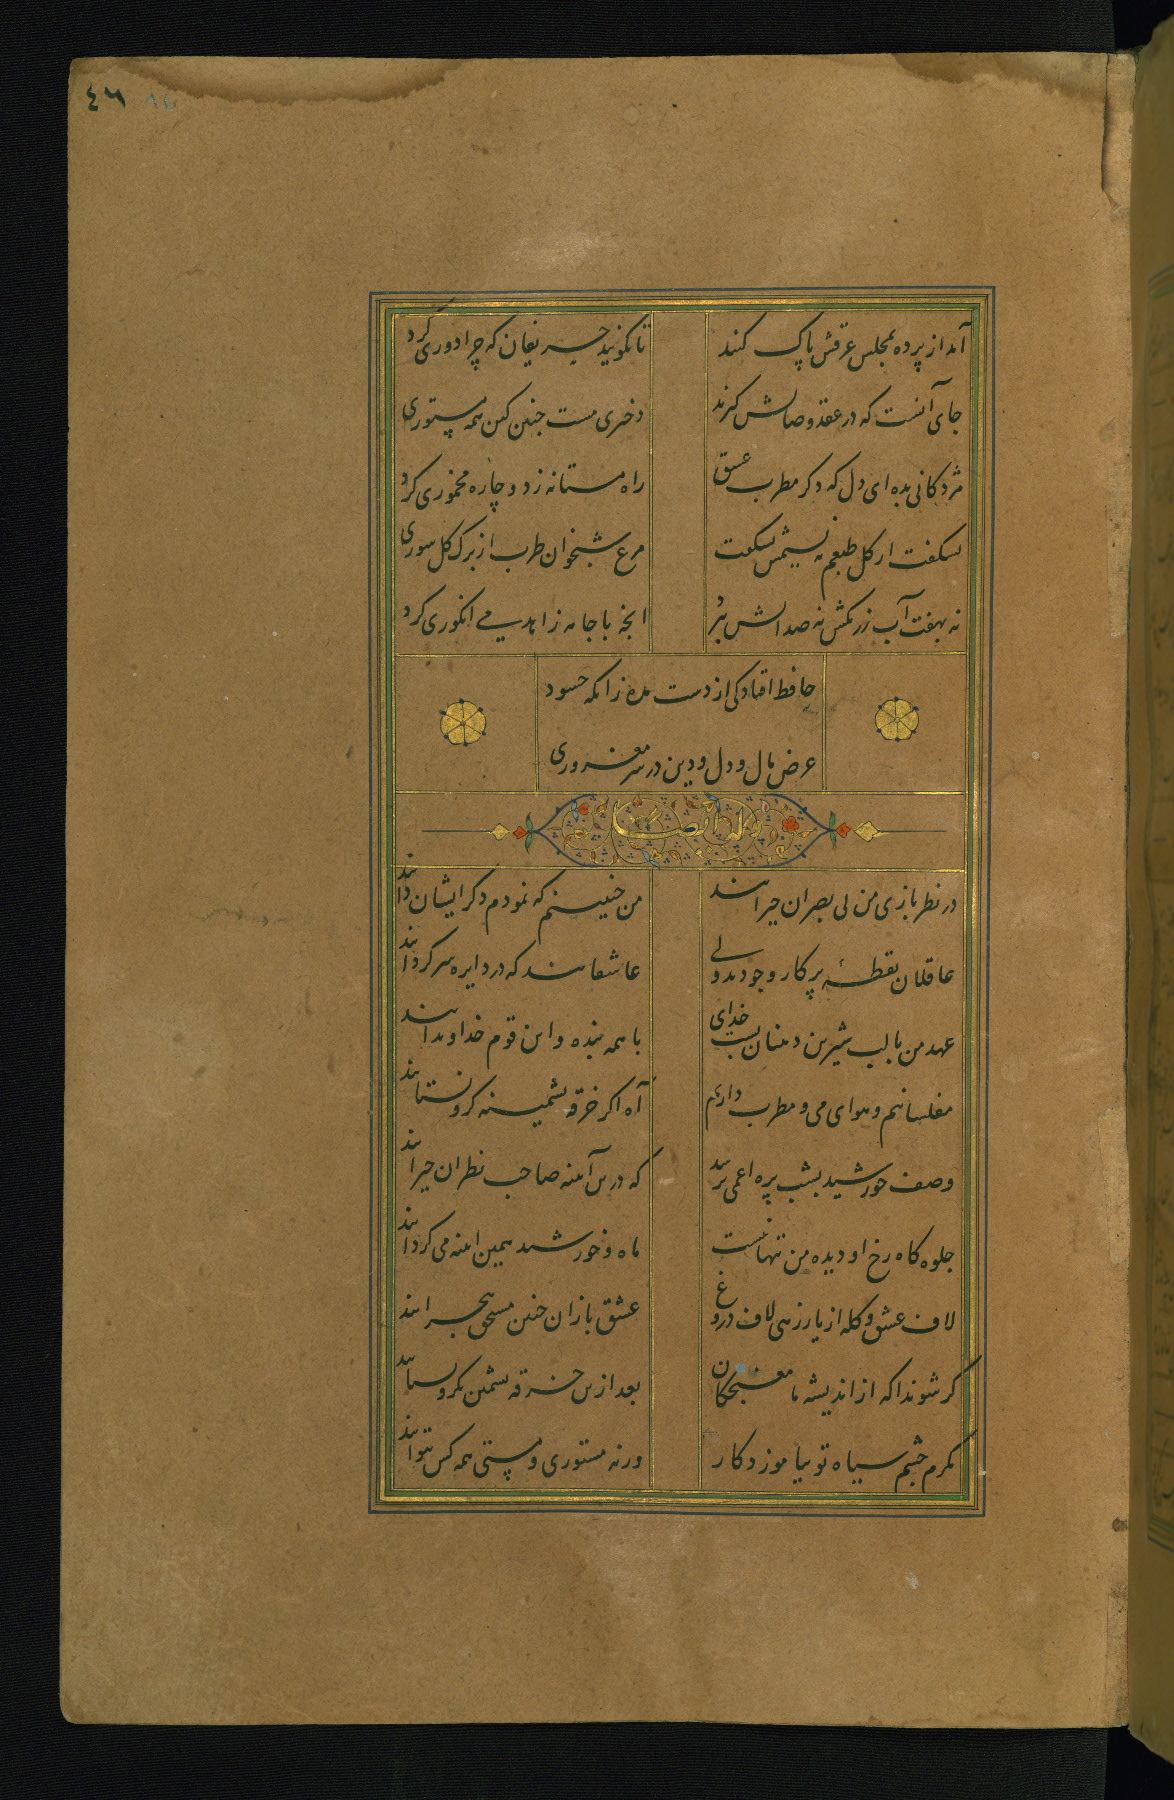 ٤٦
آمد از پرده بمجلس عرقش پاک کنید
تا نگویند حریفان که چرا دوری کرد
جای آنست که در عقد وصالش گیرند
دختری مست چنین کین همه مستوری
مژدگانی بده ای دل که دگر مطرب عشق
راه مستانه زد و چاره مخموری کرد
نشکفت از گل طبعم نه نسیمش بشکفت
مرغ شبخوان طرب از برگ گل سوری
نه بهفت آب زرنگش نه صد آتش برد
انچه با جامه زاهد می انگوری کرد
حافظ افتادگی از دست مده زانکه حسود
عرض و مال و دل و دین در سر مغروری
در نظر بازی من بی بصران حیرانند
من چنینم که نمودم دگر ایشان دانند
عاقلان نقطهٔ پرگار وجودند ولی
عاشقانند که در دایره سرگردانند
عهد من با لب شیرین دهنان بست خدای
با همه بنده و این قوم خداوندانند
مفلسانیم و هوای می و مطرب داریم
آه اگر خرقه پشمینه گرو نستانند
وصف خورشید بشب پره اعمی نرسد
که درین آینه صاحب نظران حیرانند
جلوه گاه رخ او دیده من تنها نیست
ماه و خورشید همین اینه می گردانند
لاف عشق و گله از یار زهی لاف دروغ
عشق بازان چنین مستحق هجرانند
گر شوند اگه از اندیشه ما مغبچگان
بعد ازین خرقه پشمین بگرو نستانند
مگرم چشم سیاه تو بیاموزد کار
ورنه مستوری و مستی همه کس نتوانند